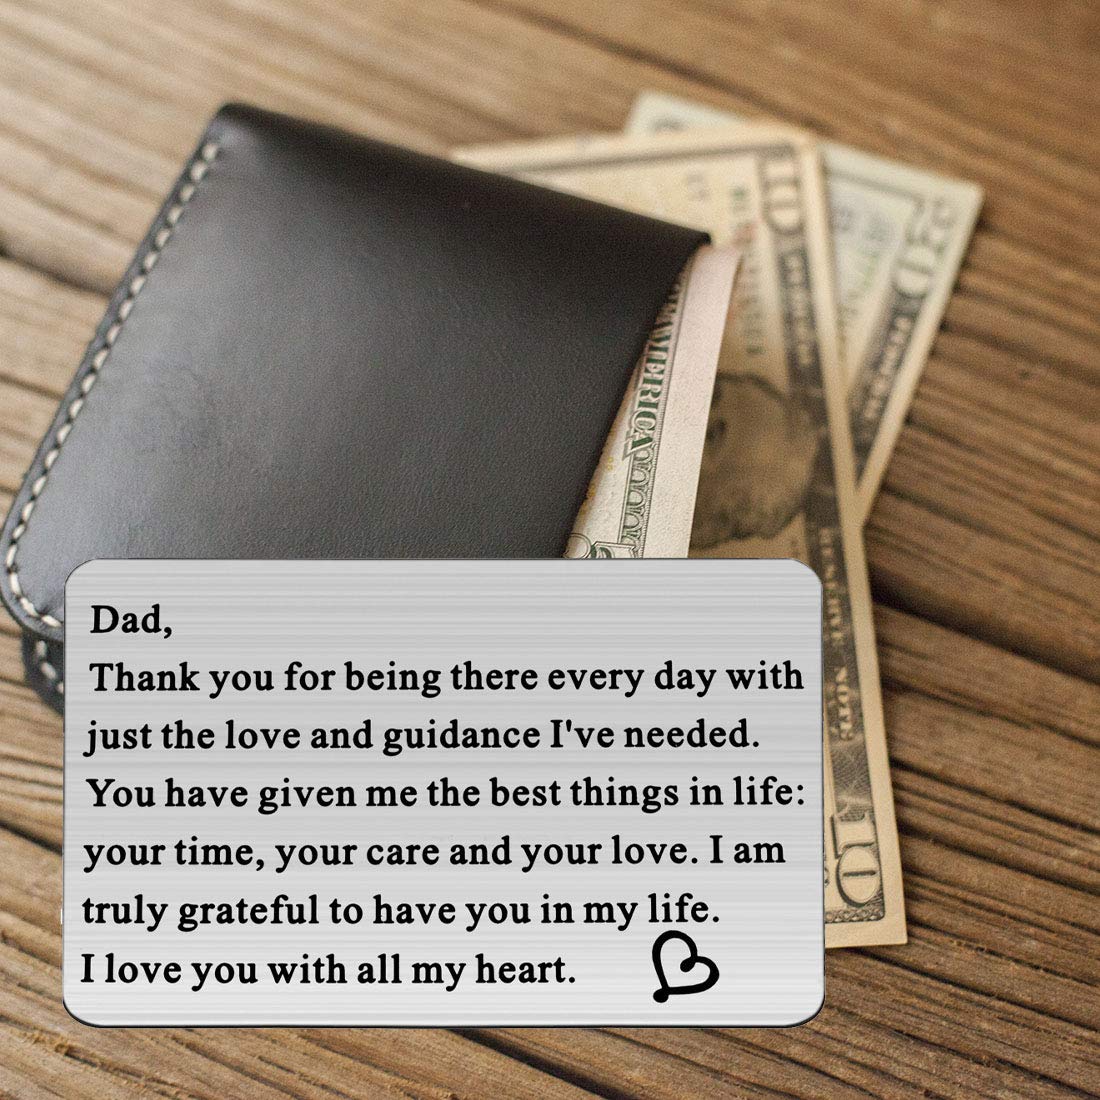 Dad,
Thank you for being there every day with
just the love and guidance I've needed.
You have given me the best things in life:
your time, your care and your love. I am
truly grateful to have you in my life.
I love you with all my heart.
AMERICA
10
10